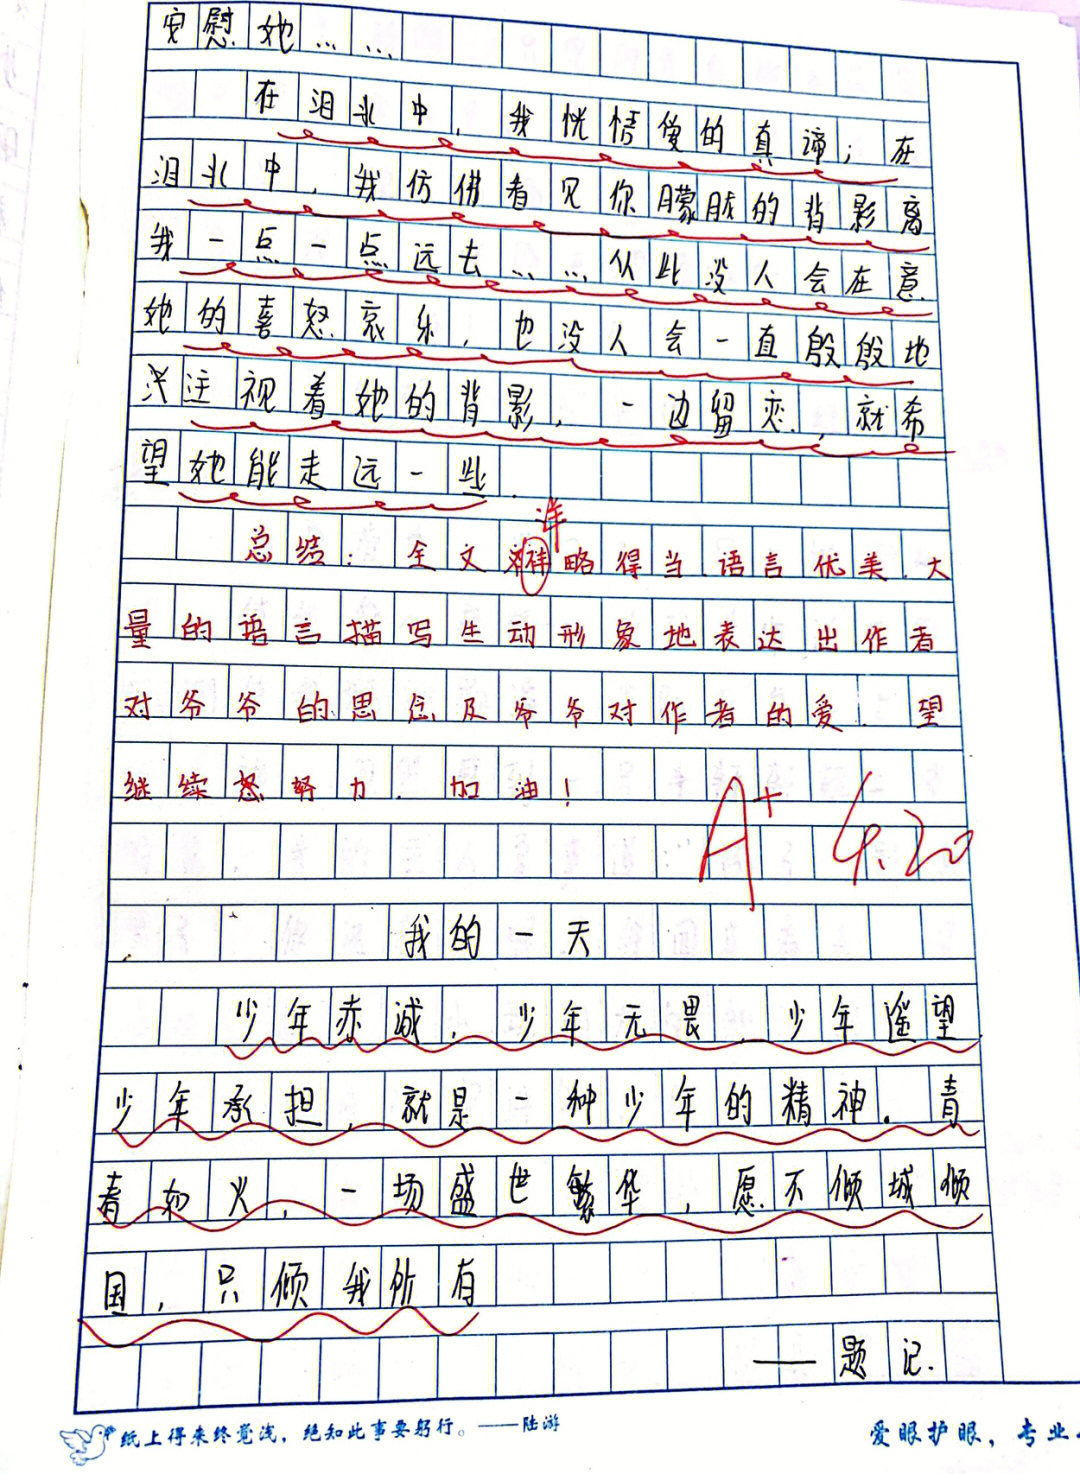 安慰她……
在泪水中，我恍悟爱的真谛；在
泪水中，我仿佛看见你朦胧的背影离
我一点一点远去……从此没人会在意
她的喜怒哀乐，也没人会一直殷殷地
注视着她的背影，一边留恋，就希
望她能走远一些.
详
总结：全文详略得当.语言优美.大
量的语言描写生动形象地表达出作者
对爷爷的思念及爷爷对作者的爱.望
继续努力.加油！
A+ 4.20
我的一天
少年赤诚，少年无畏，少年遥望
少年承担，就是一种少年的精神.青
春如火，一场盛世繁华，愿不倾城倾
国，只倾我所有
——题记.
纸上得来终觉浅，绝知此事要躬行。——陆游
爱眼护眼，专业